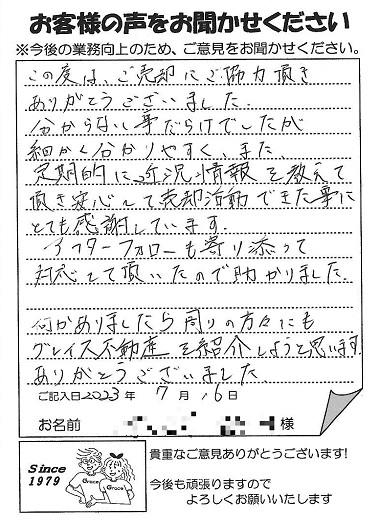 お客様の声をお聞かせください
※今後の業務向上のため、ご意見をお聞かせください。
この度は、ご売却にご協力頂き
ありがとうございました。
分からない事だらけでしたが
細かく分かりやすく、また、
定期的に近況情報を教えて
頂き安心して売却活動できた事に
とても感謝しています。
アフターフォローも寄り添って
対応して頂いたので助かりました。
何かありましたら周りの方々にも
グレイス不動産を紹介しようと思います。
ありがとうございました
ご記入日2023年 7月 16日
お名前 様
Since
1979
Grace
Grace
貴重なご意見ありがとうございます!
今後も頑張りますので
よろしくお願いいたします